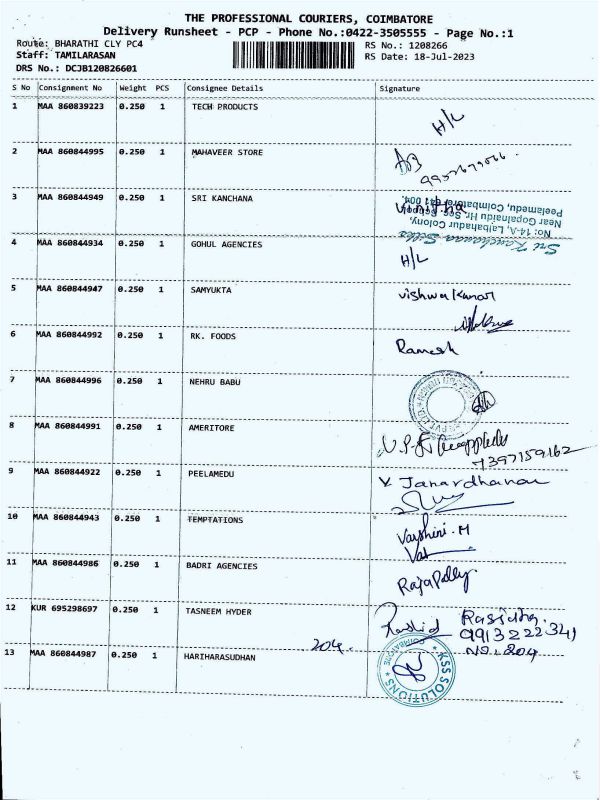 THE PROFESSIONAL COURIERS, COIMBATORE
Delivery Runsheet - PCP - Phone No.:0422-3505555 - Page No.:1
Route: BHARATHI CLY PC4 RS No.: 1208266
Staff: TAMILARASAN RS Date: 18-Jul-2023
DRS No.: DCJB120826601
S No Consignment No Weight PCS Consignee Details Signature
1 MAA 860839223 0.250 1 TECH PRODUCTS H/L
2 MAA 860844995 0.250 1 MAHAVEER STORE
3 MAA 860844949 0.250 1 SRI KANCHANA
Sri Kanchana Silks
No: 14-A, Lalbahadur Colony,
Near Gopalnaidu Hr. Sec. School,
Peelamedu, Coimbatore-641 004.
4 MAA 860844934 0.250 1 GOHUL AGENCIES H/L
5 MAA 860844947 0.250 1 SAMYUKTA vishwakumar
6 MAA 860844992 0.250 1 RK. FOODS Ramesh
7 MAA 860844996 0.250 1 NEHRU BABU
8 MAA 860844991 0.250 1 AMERITORE
7397159162
9 MAA 860844922 0.250 1 PEELAMEDU V Janardhanan
10 MAA 860844943 0.250 1 TEMPTATIONS Varshini. M
11 MAA 860844986 0.250 1 BADRI AGENCIES Rajapally
12 KUR 695298697 0.250 1 TASNEEM HYDER Rashid Rasidha.
9913222341
204. No. 204
13 MAA 860844987 0.250 1 HARIHARASUDHAN KSS SOLUTIONS COIMBATORE